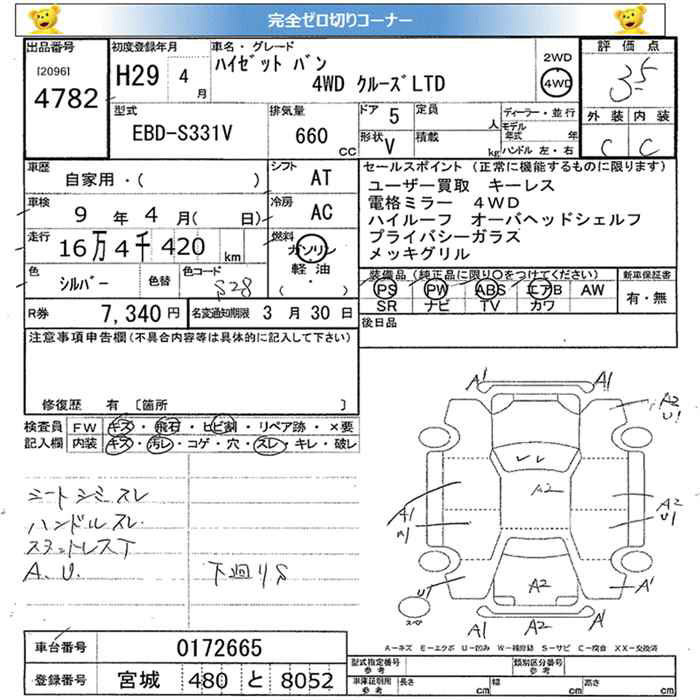 完全ゼロ切りコーナー
出品番号
[2096]
4782
初度登録年月
H29 4 月
車名・グレード
ハイゼット バン
4WD クルーズ LTD
2WD
4WD
評価点
3.5
外装 内装
C C
型式
EBD-S331V
排気量
660 CC
ドア 5
形状 V
定員 人
積載 kg
ディーラー・並行
モデル年式 年
ハンドル 左・右
車歴
自家用・( )
シフト
AT
車検
9 年 4 月( 日)
冷房
AC
走行
16万4千420 km
燃料
ガソリン
軽油
( ・ )
色
シルバー
色替
色コード
S28
セールスポイント (正常に機能するものに限ります)
ユーザー買取 キーレス
電格ミラー 4WD
ハイルーフ オーバヘッドシェルフ
プライバシーガラス
メッキグリル
装備品 (純正品に限り○をつけてください)
PS PW ABS エアB AW
SR ナビ TV カワ
新車保証書
有・無
R券 7,340 円
名変通知期限 3 月 30 日
後日品
注意事項申告欄 (不具合内容等は具体的に記入して下さい)
修復歴 有 〔箇所 〕
検査員 FW キズ・飛石・ヒビ割・リペア跡・×要
記入欄 内装 キズ・汚レ・コゲ・穴・スレ・キレ・破レ
シートシミスレ
ハンドルスレ
スタットレスT
A.U. 下廻りS
A1 A1
A2
U1
レレ
A2
A1
A1
A2
U1
U1
A2
A1
スペ
A1 A2 A1
A－キズ E－エクボ U－凹み W－補修跡 S－サビ C－腐食 XX－交換済
車台番号 0172665
登録番号 宮城 480 と 8052
型式指定番号
参考
類別区分番号
参考
車庫証明用
参考
長さ cm 幅 cm 高さ cm